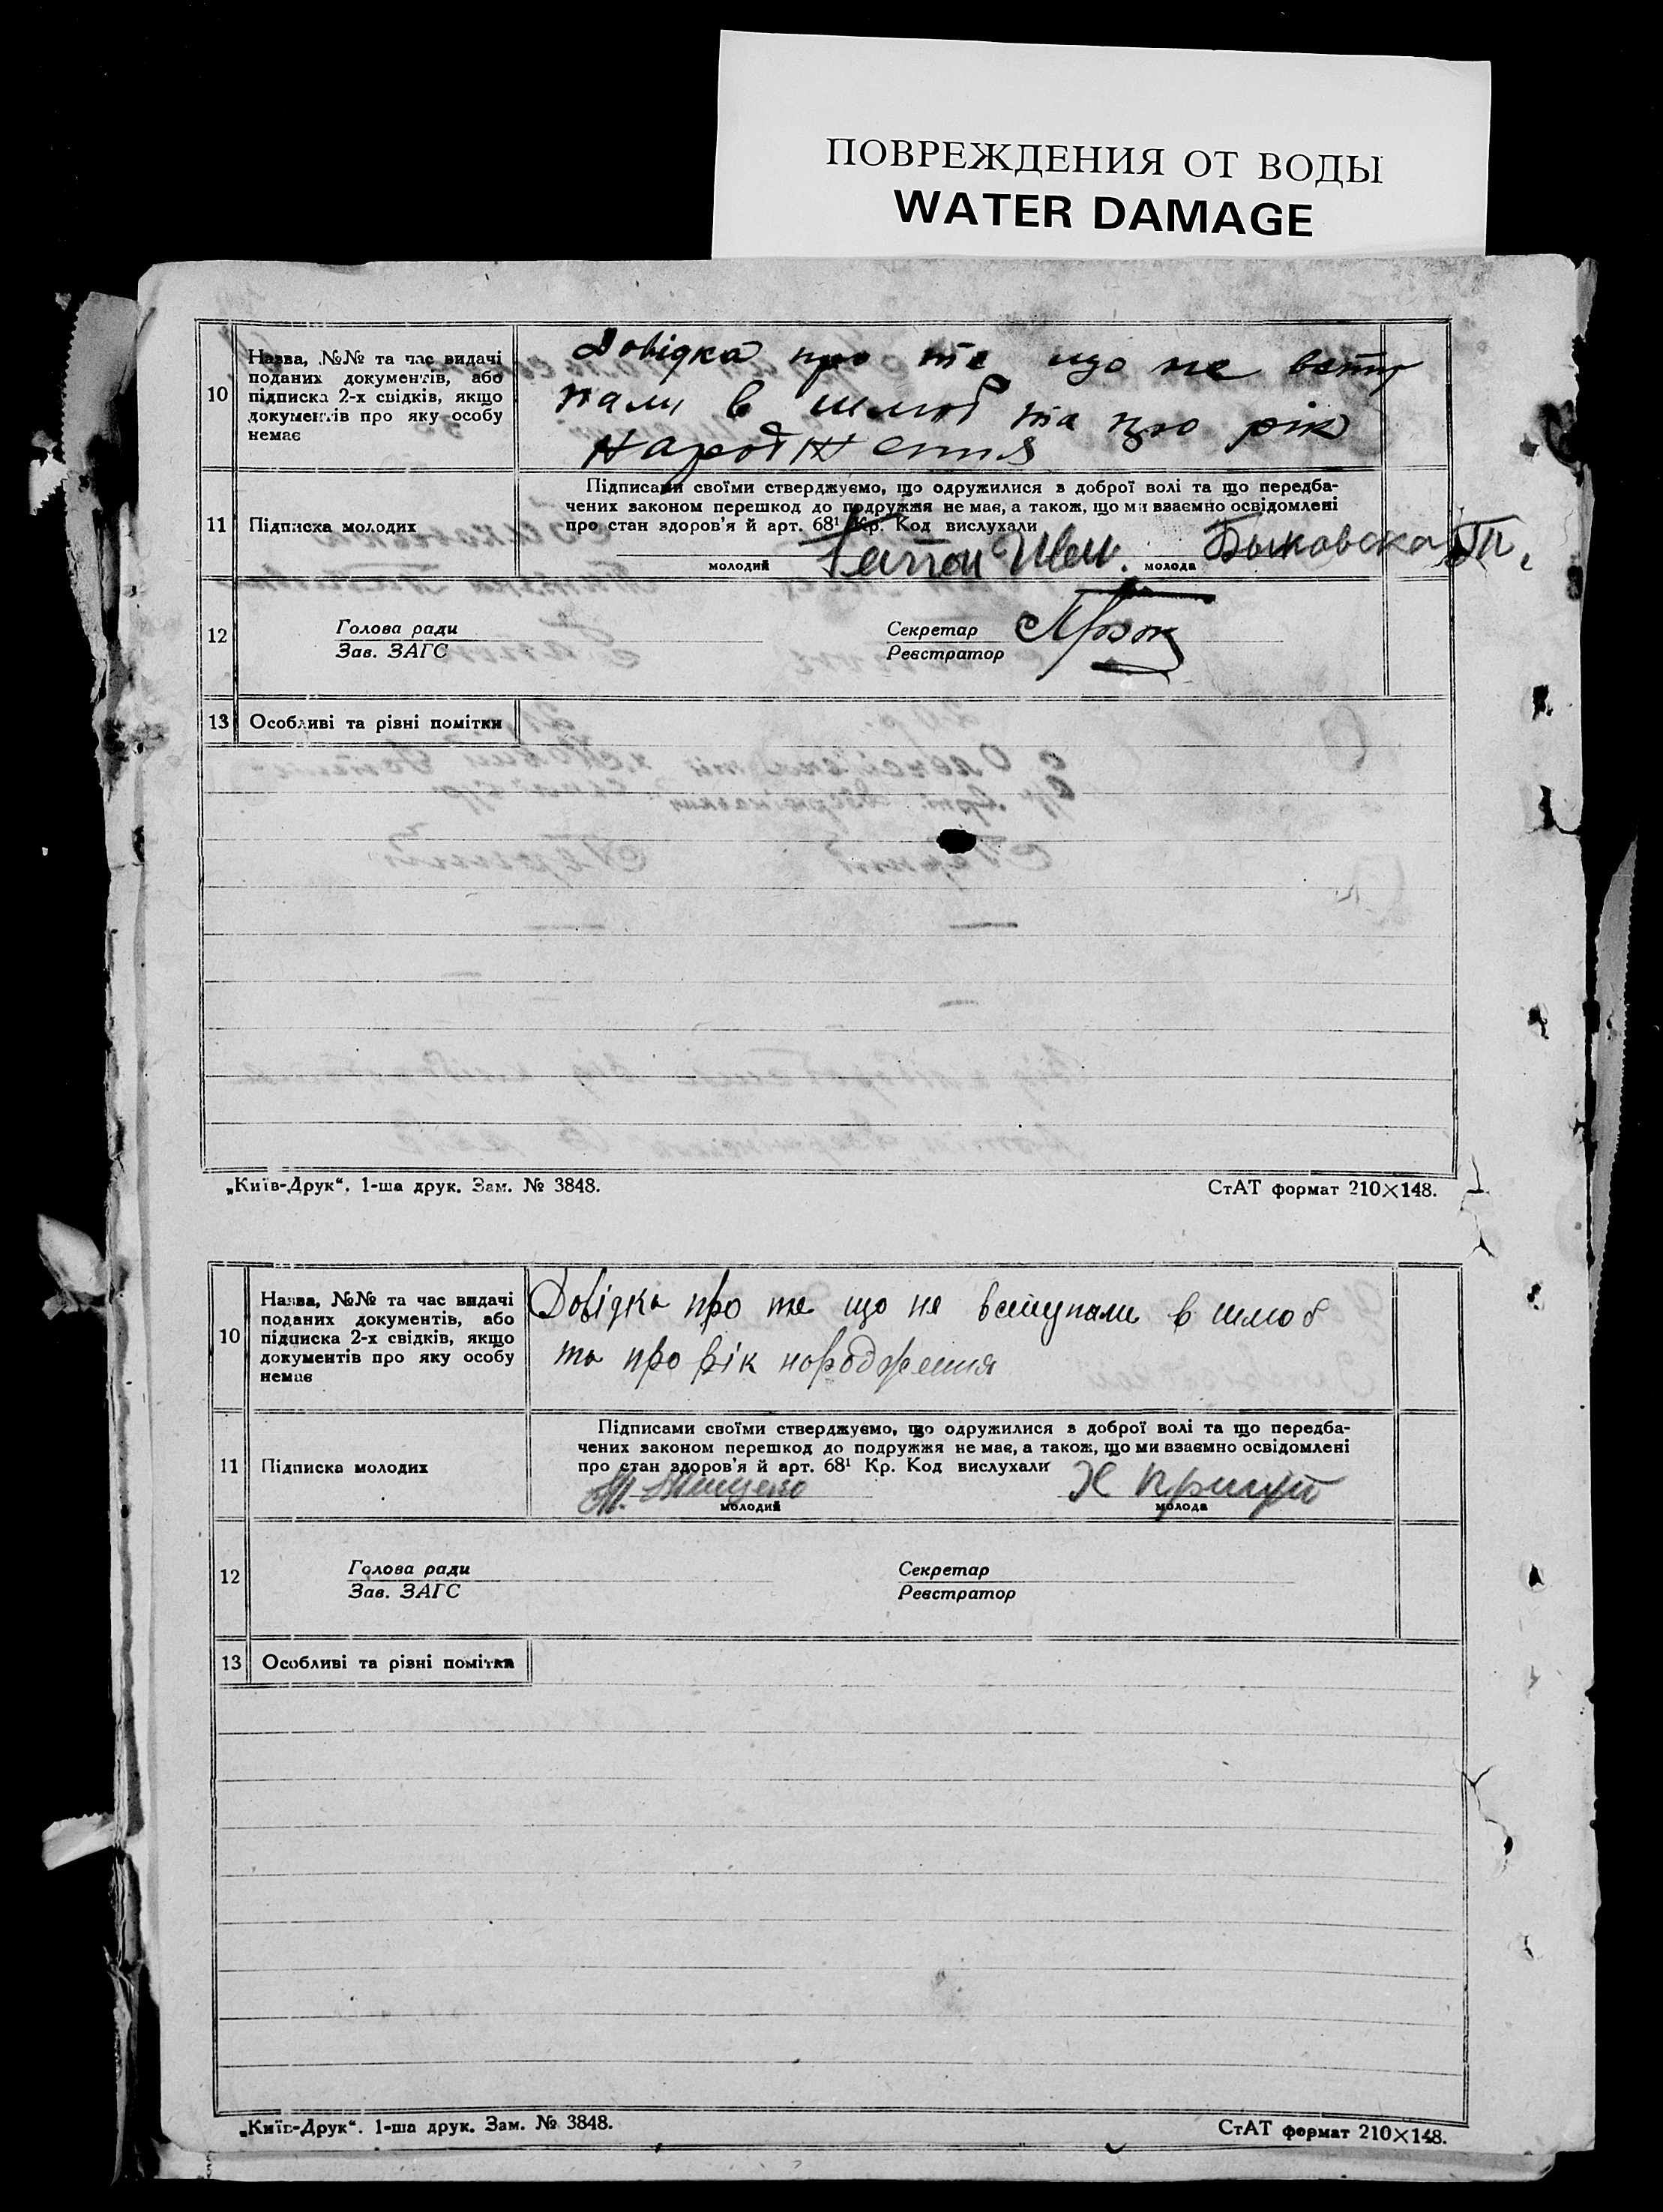 ПОВРЕЖДЕНИЯ ОТ ВОДЫ
WATER DAMAGE
10
Назва, №№ та час видачі
поданих документів, або
підписка 2-х свідків, якщо
документів про яку особу
немає
Довідка про те що не всту
пали в шлюб та про рік
народження
11
Підписка молодих
Підписами своїми стверджуємо, що одружилися в доброї волі та що передба-
чених законом перешкод до подружжя не має, а також, що ми взаємно освідомлені
про стан здоров'я й арт. 68¹ Кр. Код вислухали
Гапон Иван. Быковска
молодий молода
12
Голова ради
Зав. ЗАГС
Секретар
Реєстратор
13
Особливі та рівні помітки
„Київ-Друк“. 1-ша друк. Зам. № 3848.
СтАТ формат 210×148.
10
Назва, №№ та час видачі
поданих документів, або
підписка 2-х свідків, якщо
документів про яку особу
немає
Довідка про те що не вступали в шлюб
та про рік народження
11
Підписка молодих
Підписами своїми стверджуємо, що одружилися в доброї волі та що передба-
чених законом перешкод до подружжя не має, а також, що ми взаємно освідомлені
про стан здоров'я й арт. 68¹ Кр. Код вислухали
молодий молода
12
Голова ради
Зав. ЗАГС
Секретар
Реєстратор
13
Особливі та рівні помітки
„Київ-Друк“. 1-ша друк. Зам. № 3848.
СтАТ формат 210×148.